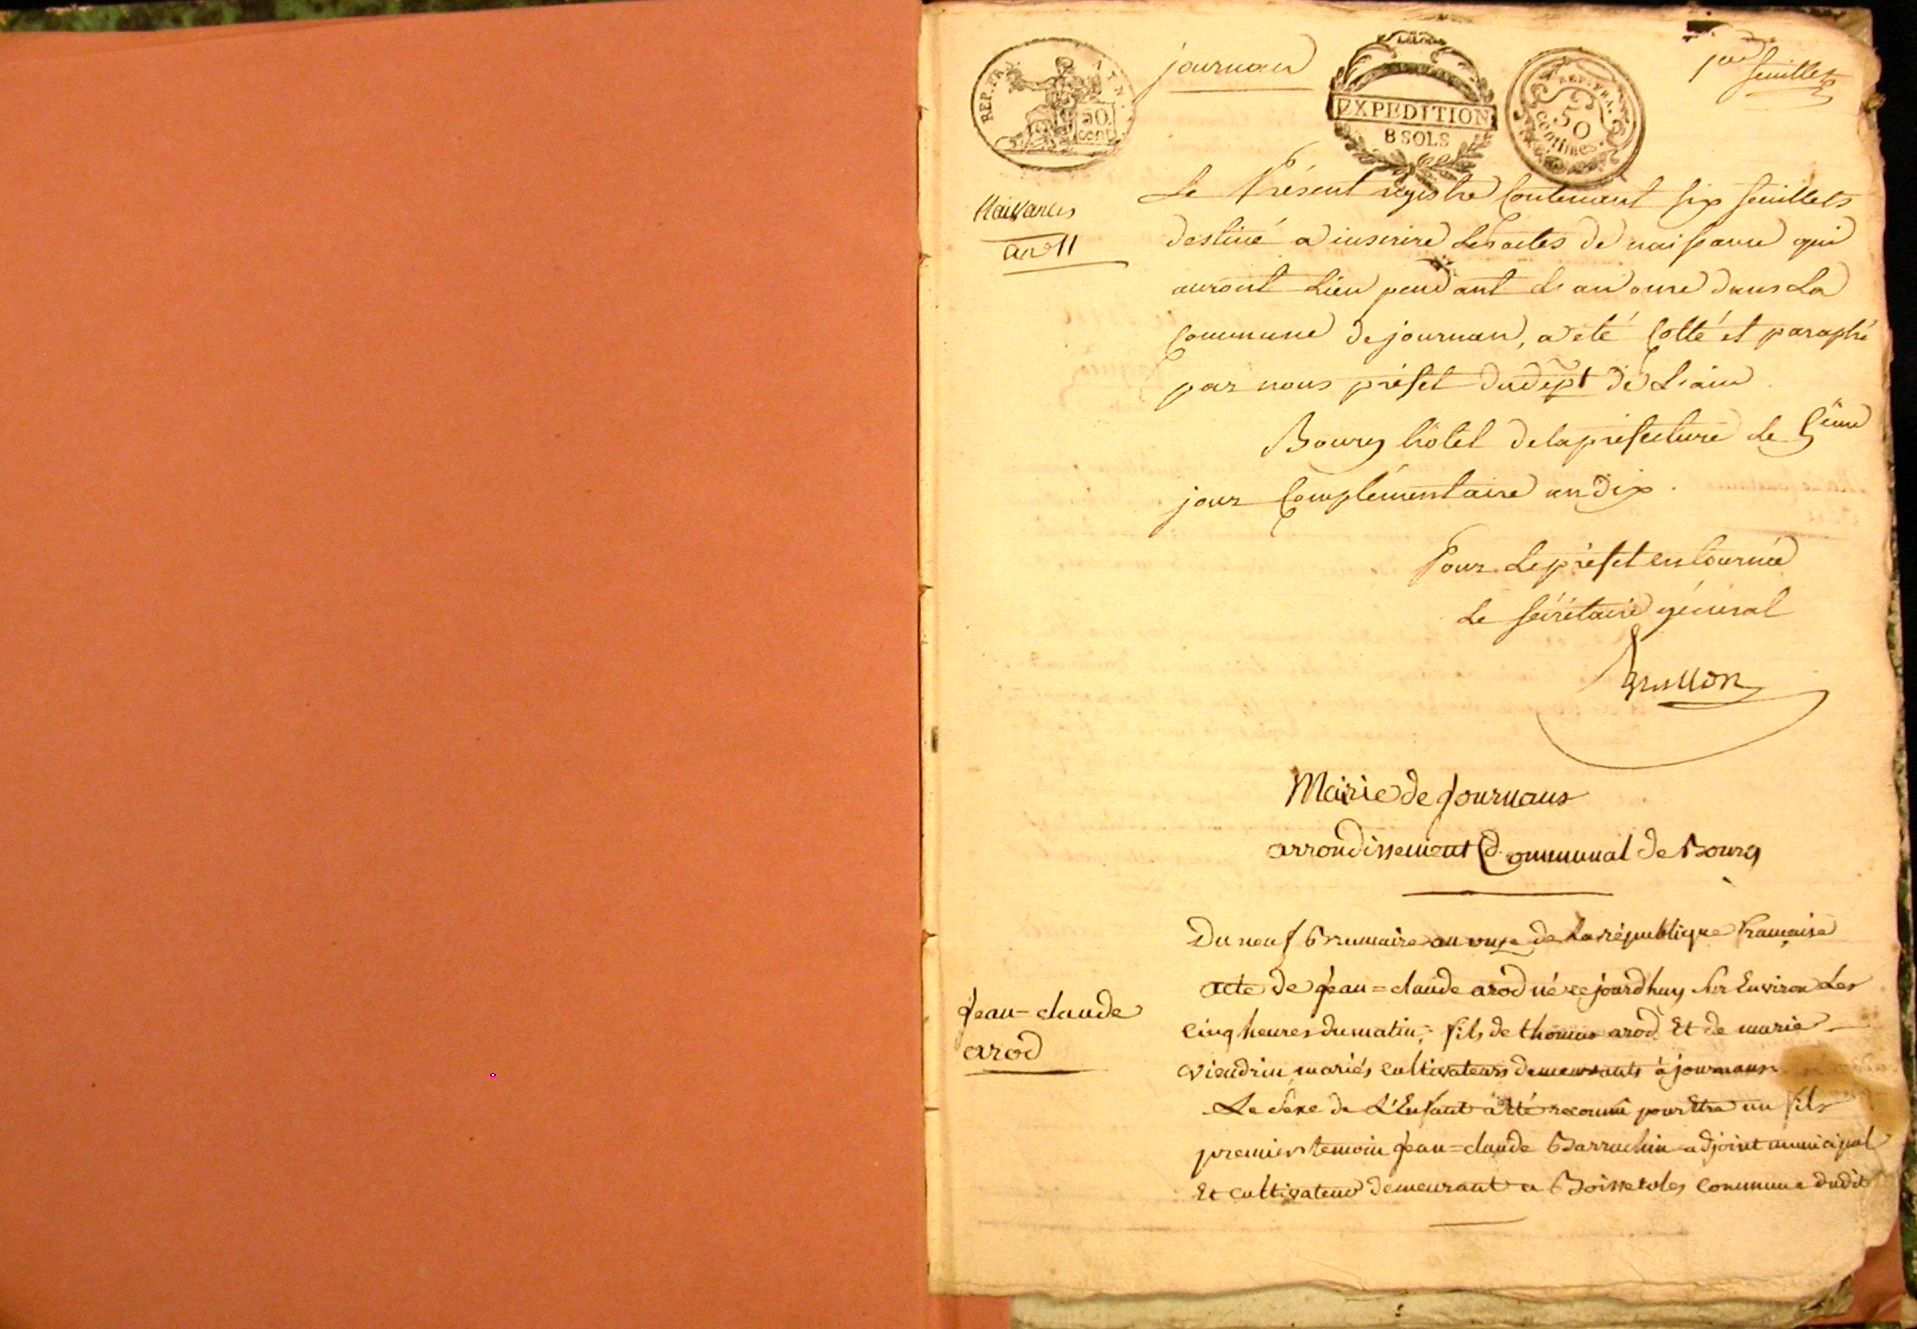 REP. FRA. 50 cent.
journan
EXPEDITION
8 SOLS
REP. FRA.
50
centimes
1er feuillet
Naissances
an 11
Le Présent registre Contenant six feuillets
destiné a inscrire Les actes de naissance qui
auront Lieu pendant L'an onze dans La
Commune de journan, a été Cotté et paraphé
par nous préfet du dépt de L'ain
Bourg hôtel de la préfecture le 5eme
jour Complémentaire an dix.
Pour Le préfet en tournée
Le secrétaire général
Mairie de Journans
arrondissement Communal de Bourg
Du neuf Brumaire an onze de La république francaise
Jean=claude
arod
acte de Jean=claude arod né cejourdhuy sur Environ Les
cinq heures du matin, fils de thomas arod Et de marie
viendrin mariés cultivateurs demeurants à journans
Le sexe de L'Enfant a Eté reconnu pour Etre un fils
premier temoin Jean=claude Barrachin adjoint municipal
Et cultivateur demeurant a Boisserolles commune dudit